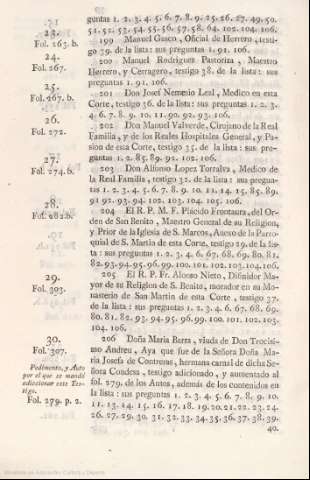 guntas 1. 2. 3. 4. 5. 6. 7. 8. 9. 25. 26. 27. 49. 50.
51. 52. 53. 54. 55. 56. 57. 58. 64. 102. 104. 106.
23.
Fol. 263. b.
199 Manuel Gasco, Oficial de Herrero, testi-
go 39. de la lista: sus preguntas 1. 91. 106.
24.
Fol. 267.
200 Manuel Rodriguez Pastoriza, Maestro
Herrero, y Cerragero, testigo 38. de la lista: sus
preguntas 1. 91. 106.
25.
Fol. 267. b.
201 Don Josef Nemesio Leal, Medico en esta
Corte, testigo 36. de la lista: sus preguntas 1. 2. 3.
4. 6. 7. 8. 9. 10. 11. 90. 92. 93. 106.
26.
Fol. 272.
202 Don Manuel Valverde, Cirujano de la Real
Familia, y de los Reales Hospitales General, y Pa-
sion de esta Corte, testigo 35. de la lista: sus pre-
guntas 1. 2. 85. 89. 92. 102. 106.
27.
Fol. 274. b.
203 Don Alfonso Lopez Torralva, Medico de
la Real Familia, testigo 32. de la lista: sus pregun-
tas 1. 2. 3. 4. 5. 6. 7. 8. 9. 10. 11. 14. 15. 85. 89.
91. 92. 93. 94. 102. 103. 104. 105. 106.
28.
Fol. 282. b.
204 El R. P. M. F. Placido Frontaura, del Or-
den de San Benito, Maestro General de su Religion,
y Prior de la Iglesia de S. Marcos, Anexo de la Parro-
quial de S. Martin de esta Corte, testigo 29. de la lis-
ta: sus preguntas 1. 2. 3. 4. 6. 67. 68. 69. 80. 81.
82. 93. 94. 95. 96. 99. 100. 101. 102. 103. 104. 106.
29.
Fol. 393.
205 El R. P. Fr. Alonso Nieto, Difinidor Ma-
yor de su Religion de S. Benito, morador en su Mo-
nasterio de San Martin de esta Corte, testigo 37.
de la lista: sus preguntas 1. 2. 3. 4. 6. 67. 68. 69.
80. 81. 82. 93. 94. 95. 96. 99. 100. 101. 102. 103.
104. 106.
30.
Fol. 307.
Pedimento, y Auto
por el que se mandó
adiccionar este Tes-
tigo.
Fol. 279. p. 2.
206 Doña Maria Barra, viuda de Don Trocisi-
mo Andreu, Aya que fue de la Señora Doña Ma-
ria Josefa de Contreras, hermana carnal de dicha Se-
ñora Condesa, testigo adicionado, y aumentado al
fol. 279. de los Autos, además de los contenidos en
la lista: sus preguntas 1. 2. 3. 4. 5. 6. 7. 8. 9. 10.
11. 13. 14. 15. 16. 17. 18. 19. 20. 21. 22. 23. 24.
26. 27. 29. 30. 31. 32. 33. 34. 35. 36. 37. 38. 39.
40.